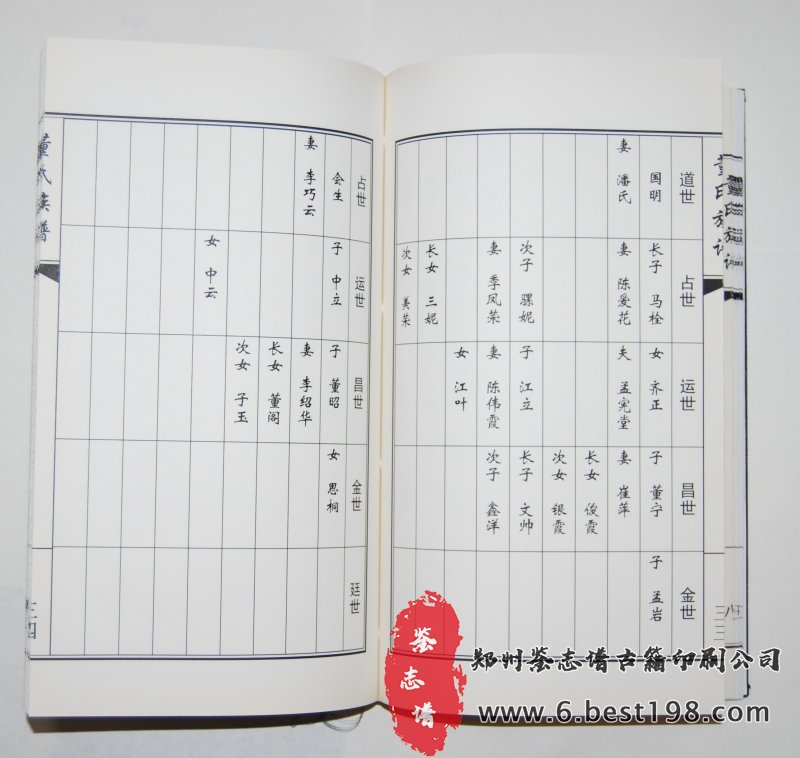 董氏族谱
道世
国明
妻 潘氏
占世
长子 马栓
妻 陈爱花
次子 骒妮
妻 季凤荣
长女 三妮
次女 美荣
运世
女 齐正
夫 孟宪堂
子 江立
妻 陈伟霞
女 江叶
昌世
子 董宁
妻 崔萍
长女 俊霞
次女 银霞
长子 文帅
次子 鑫洋
金世
子 孟岩
三三
占世
会生
妻 李巧云
运世
子 中立
女 中云
昌世
子 董昭
妻 李绍华
长女 董阁
次女 子玉
金世
女 思桐
廷世
董氏族谱
三四
鉴志谱
郑州鉴志谱古籍印刷公司
www.6.best198.com